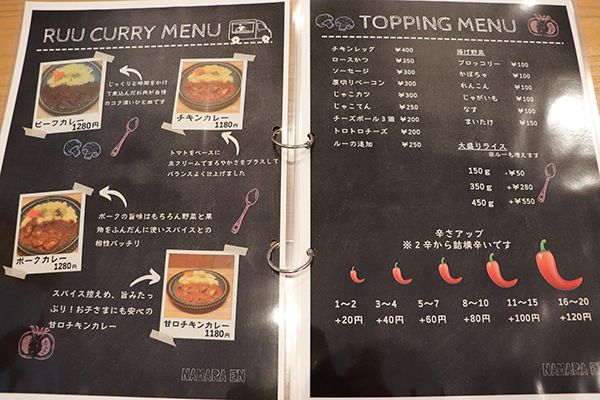 RUU CURRY MENU
じっくりと時間をかけ
て煮込んだお肉が自慢
のコク深いひと皿です
ビーフカレー
1280円
チキンカレー
1180円
トマトをベースに
生クリームでまろやかさをプラスして
バランスよく仕上げました
ポークの旨味はもちろん野菜と果
物をふんだんに使いスパイスとの
相性バッチリ
ポークカレー
1280円
スパイス控えめ、旨みたっ
ぷり!お子さまにも安心の
甘口チキンカレー
甘口チキンカレー
1180円
NAMARA EN
TOPPING MENU
チキンレッグ ¥400
ロースかつ ¥350
ソーセージ ¥300
厚切りベーコン ¥300
じゃこカツ ¥300
じゃこてん ¥250
チーズボール3個 ¥200
トロトロチーズ ¥200
ルーの追加 ¥250
揚げ野菜
ブロッコリー ¥100
かぼちゃ ¥100
れんこん ¥100
じゃがいも ¥100
なす ¥100
まいたけ ¥150
大盛りライス
※ルーも増えます
150g -¥50
350g +¥280
450g +¥550
辛さアップ
※2辛から結構辛いです
1〜2 3〜4 5〜7 8〜10 11〜15 16〜20
+20円 +40円 +60円 +80円 +100円 +120円
NAMARA EN